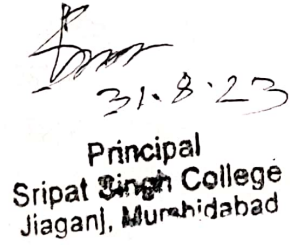 31.8.23
Principal
Sripat Singh College
Jiaganj, Murshidabad